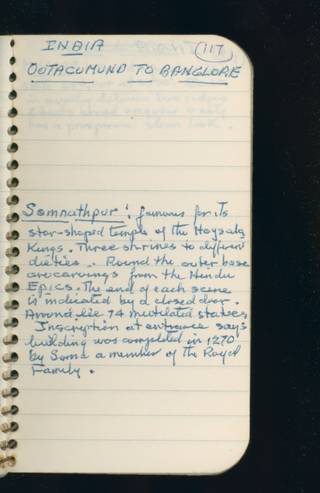 INDIA
117
OOTACUMUND TO BANGLORE
Somnathpur : famous for its
star-shaped temple of the Hoysala
Kings. Three shrines to different
dieties. Round the outer base
are carvings from the Hindu
Epics. The end of each scene
is indicated by a closed door.
Around lie 74 mutilated statues
Inscription at entrance says
building was completed in 1270
by Soma a member of the Royal
Family.